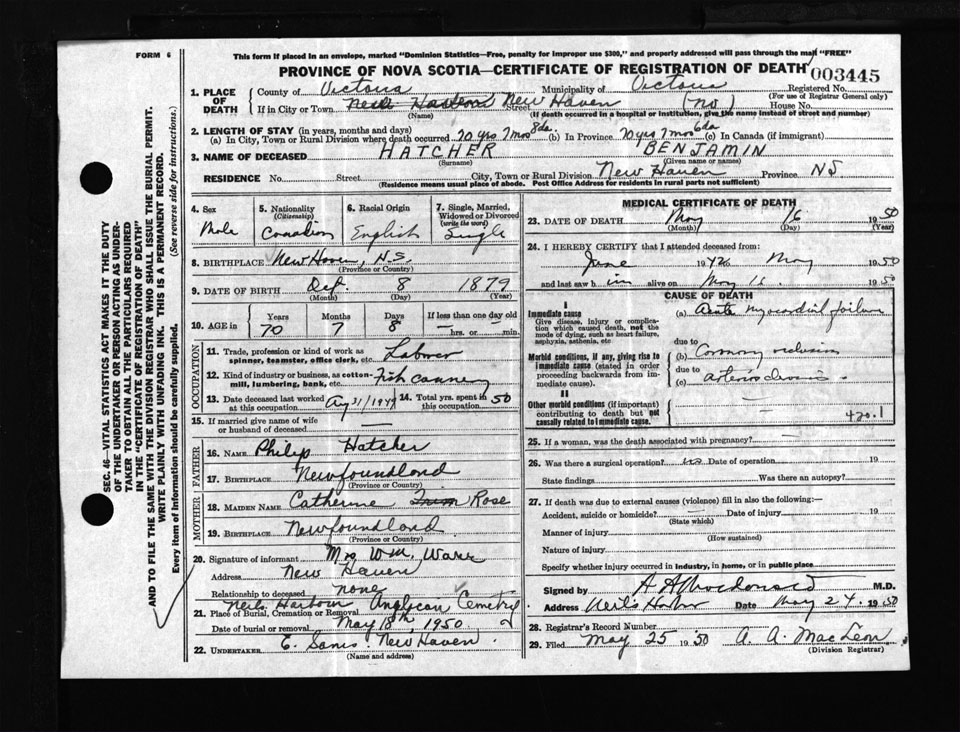 FORM 6
This form if placed in an envelope, marked "Dominion Statistics—Free, penalty for improper use $300," and properly addressed will pass through the mail "FREE"
PROVINCE OF NOVA SCOTIA—CERTIFICATE OF REGISTRATION OF DEATH
003445
1. PLACE OF DEATH
County of Victoria Municipality of Victoria Registered No.
(For use of Registrar General only)
If in City or Town Neils Harbour New Haven Street (no) House No.
(Name) (If death occurred in a hospital or institution, give the name instead of street and number)
2. LENGTH OF STAY (in years, months and days)
(a) In City, Town or Rural Division where death occurred 70 yrs 7 mos 8 da. (b) In Province 70 yrs 7 mos 6 da (c) In Canada (if immigrant)
3. NAME OF DECEASED HATCHER BENJAMIN
(Surname) (Given name or names)
RESIDENCE No. Street City, Town or Rural Division New Haven Province NS
(Residence means usual place of abode. Post Office Address for residents in rural parts not sufficient)
SEC. 46—VITAL STATISTICS ACT MAKES IT THE DUTY
OF THE UNDERTAKER OR PERSON ACTING AS UNDER-
TAKER TO OBTAIN ALL THE PARTICULARS REQUIRED
IN THE "CERTIFICATE OF REGISTRATION OF DEATH"
AND TO FILE THE SAME WITH THE DIVISION REGISTRAR WHO SHALL ISSUE THE BURIAL PERMIT.
WRITE PLAINLY WITH UNFADING INK. THIS IS A PERMANENT RECORD.
Every item of Information should be carefully supplied. (See reverse side for instructions.)
4. Sex Male
5. Nationality (Citizenship) Canadian
6. Racial Origin English
7. Single, Married, Widowed or Divorced (write the word) Single
8. BIRTHPLACE New Haven, N.S.
(Province or Country)
9. DATE OF BIRTH 8 1879
(Month) (Day) (Year)
10. AGE in Years Months Days If less than one day old
70 7 8 — hrs. or — min.
OCCUPATION
11. Trade, profession or kind of work as spinner, teamster, office clerk, etc. Labourer
12. Kind of industry or business, as cotton-mill, lumbering, bank, etc. Fish cannery
13. Date deceased last worked at this occupation Aug 31/1949 14. Total yrs. spent in this occupation 50
15. If married give name of wife or husband of deceased —
FATHER
16. NAME Philip Hatcher
17. BIRTHPLACE Newfoundland
(Province or Country)
MOTHER
18. MAIDEN NAME Catherine Rose
19. BIRTHPLACE Newfoundland
(Province or Country)
20. Signature of informant Mrs Wm. Ware
Address New Haven
Relationship to deceased none
21. Place of Burial, Cremation or Removal Neils Harbour Anglican Cemetry
Date of burial or removal May 18th, 1950
22. UNDERTAKER E. Sams New Haven
(Name and address)
MEDICAL CERTIFICATE OF DEATH
23. DATE OF DEATH May 16 1950
(Month) (Day) (Year)
24. I HEREBY CERTIFY that I attended deceased from:
June 1942 May 1950
and last saw h im alive on May 16 1950
CAUSE OF DEATH
I
Immediate cause
Give disease, injury or complica-
tion which caused death, not the
mode of dying, such as heart failure,
asphyxia, asthenia, etc
(a) Acute myocardial failure
due to
Morbid conditions, if any, giving rise to
immediate cause (stated in order
proceeding backwards from im-
mediate cause).
(b) Coronary occlusion
due to
(c) arteriosclerosis
II
Other morbid conditions (if important)
contributing to death but not causally
related to immediate cause.
420.1
25. If a woman, was the death associated with pregnancy?
26. Was there a surgical operation? no Date of operation 19
State findings Was there an autopsy?
27. If death was due to external causes (violence) fill in also the following:—
Accident, suicide or homicide? Date of injury 19
(State which)
Manner of injury
(How sustained)
Nature of injury
Specify whether injury occurred in industry, in home, or in public place
Signed by A A Macdonald M.D.
Address Neil's Harbor Date May 24 1950
28. Registrar's Record Number
29. Filed May 25 1950 A. A. MacLeon
(Division Registrar)